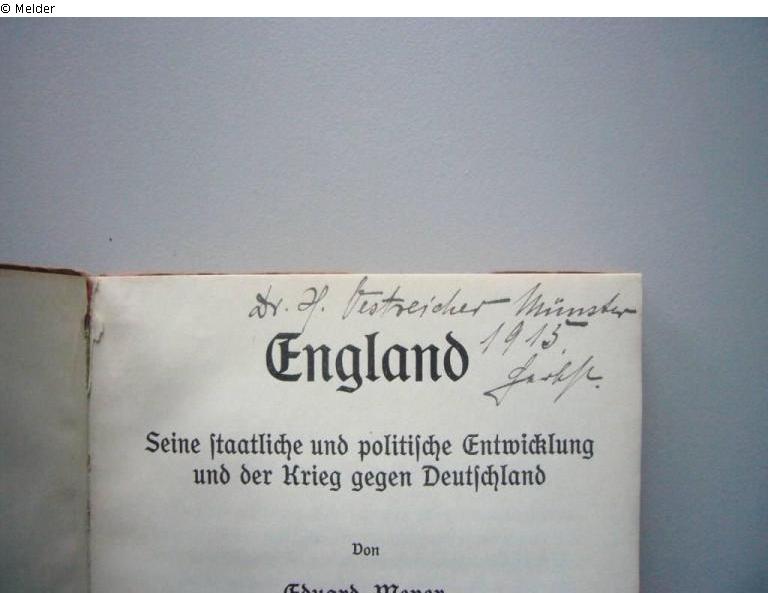 © Melder
Dr. H. Oestreicher Münster
1915.
Herbst.
England
Seine staatliche und politische Entwicklung
und der Krieg gegen Deutschland
Von
Eduard Meyer